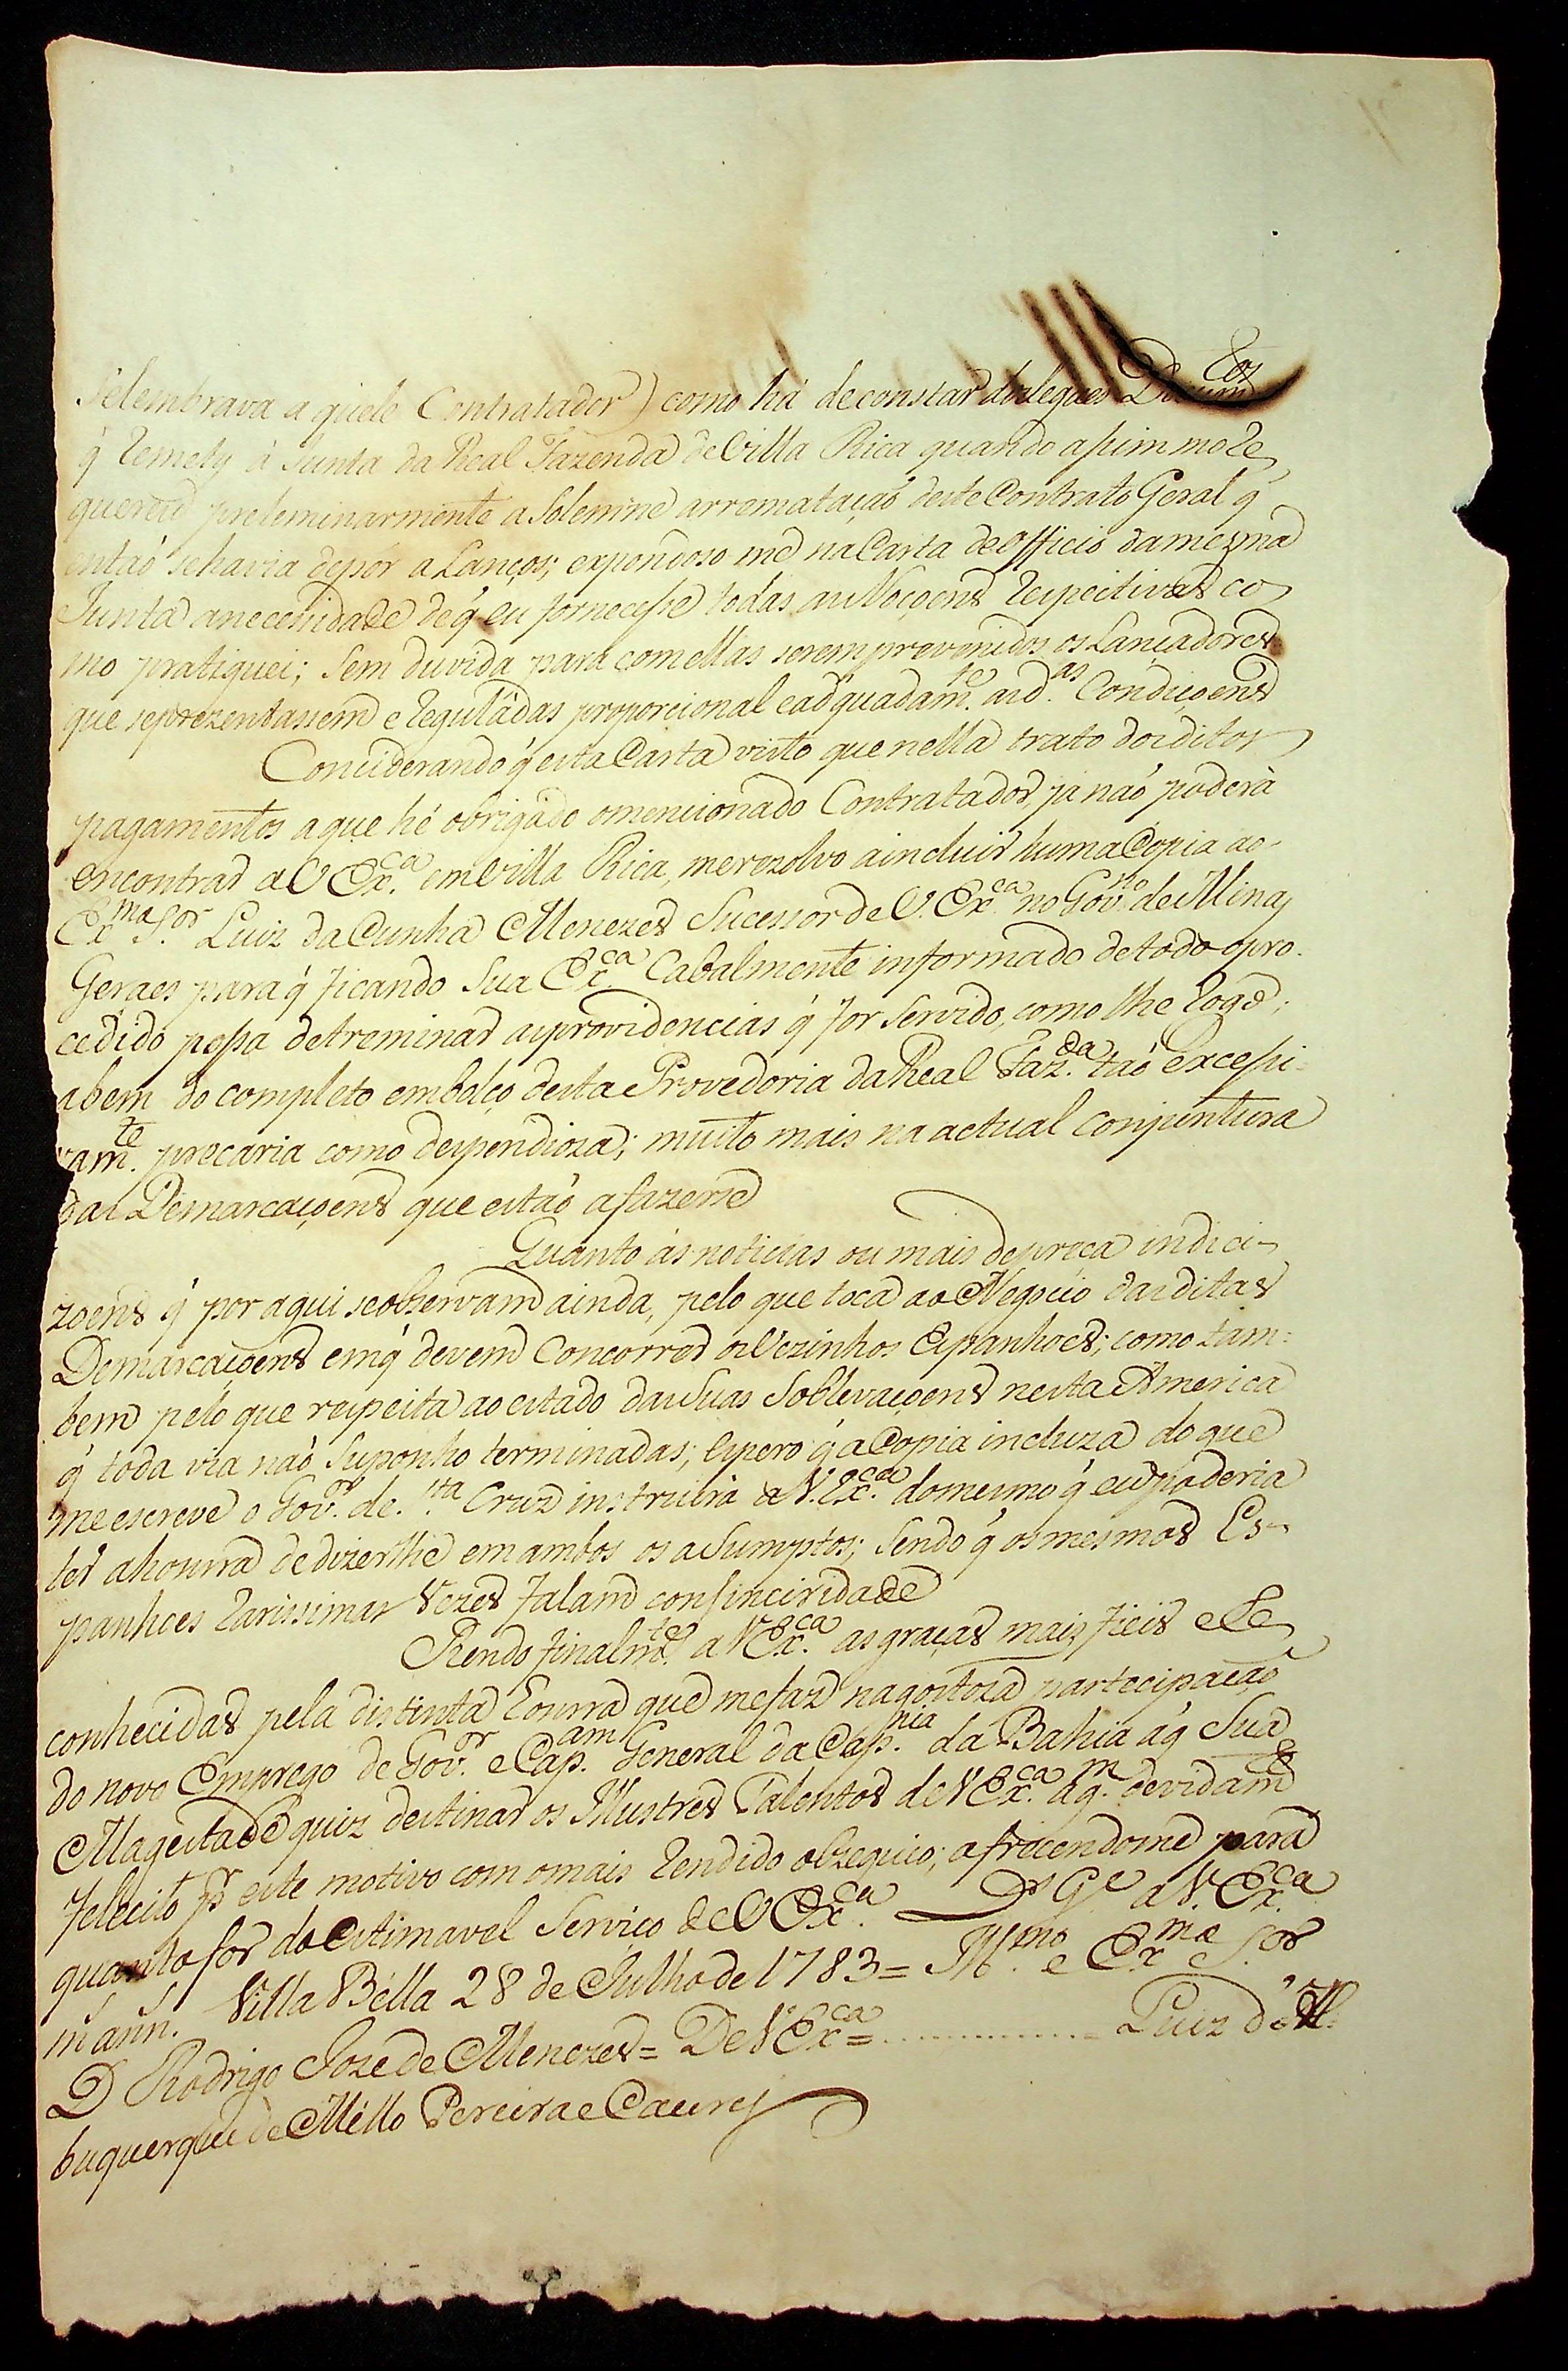 Selembrava aquele Contratador) como há deconstar daleguco Docum.tos
q̃ Remety á Junta da Real Fazenda de Villa Rica quando assim mo Re
quereo preleminarmente a Solemne arremataçaõ deste Contrato Geral q̃
entaõ sehavia depor a Lanços; expondoso me na Carta deOfficio damesma
Junta anecessidade deq̃ eu fornecesse todas as Noçoens Respectivas co
mo pratiquei; Sem duvida para comellas seremprevenidos os Lançadores
que seprezentassem e Reguladas proporcional eadquadam.te as d.as Condiçoens
Considerando q̃ esta Carta visto que nella trato dos ditos
pagamentos aque hé obrigado omencionado Contratador, já naõ poderà
encontrar a V Ex.ca em Villa Rica, merezolvo aincluir huma Copia ao
Ex.mo S.or Luiz da Cunha Menezes Sucessor de V. Ex.ca no Gov.no de Minas
Geraes para q̃ ficando Sua Ex.ca Cabalmente informado detodo opro-
cedido possa detreminar asprovidencias q̃ for Servido, como lhe Rogo;
abem do completo embolço desta Provedoria da Real Faz.da taõ excessi-
vam.te precaria como despendioza; muito mais na actual conjuntura
das Demarcaçoens que estaõ afazerse
Quanto ás noticias ou mais depreça indici-
zoens q̃ por aqui seobservam ainda, pelo que toca ao Negocio das ditas
Demarcaçoens emq̃ devem Concorrer os Vezinhos Espanhoes; como tam-
bem pelo que respeita ao estado das Suas Soblevaçoens nesta America
q̃ toda via naõ Suponho terminadas; Espero q̃ a Copia incluza do que
me escreve o Gov.or de S.ta Cruz instruirà a V. Ex.ca domesmo q̃ eu poderia
ter ahonrra dedizerlhe emambos os aSumptos; Sendo q̃ os mesmos Es-
panhoes Rarissimas Vezes Falam consinciridade
Rendo finalm.te a V Ex.ca as graças mais fieis e Re
conhecidas pela distinta honrra que mefaz nagostoza partecipaçaõ
do novo Emprego de Gov.or e Cap.am General da Cap.nia da Bahia áq̃ Sua
Magestade quiz destinar os Illustres Talentos de V Ex.ca a q.m devidam.e
Felecito pr este motivo com omais Rendido obzequio; afrecendome para
quanto for do Estimavel Serviço de V Ex.ca D.s G.e a V. Ex.ca
m ann. Villa Bella 28 de Julho de 1783 = Ill.mo e Ex.mo S.or
D Rodrigo Joze de Menezes = De V Ex.ca = Luiz d'Al-
buquerque de Mello Pereira e Caceres